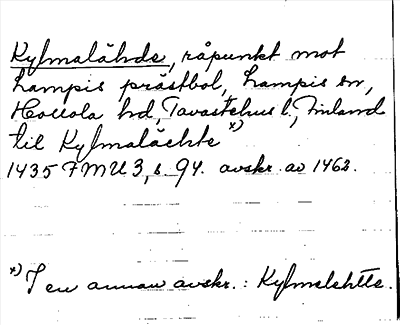 Kylmalähde, råpunkt mot
Lampis prästbol, Lampis sn,
Hollola hd, Tavastehus l., Finland
til Kylmalächte *)
1435 FMU 3, s. 94. avskr. av 1462.
*) I en annan avskr.: Kylmelehtte.